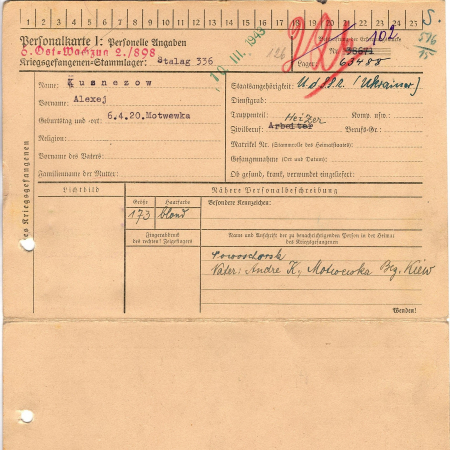 1 2 3 4 5 6 7 8 9 10 11 12 13 14 15 16 17 18 19 20 21 22 23
Personalkarte I: Personelle Angaben
Kriegsgefangenen-Stammlager: Stalag 336
10. III. 1943
126
102
Lager: 63488
S.
516
75
Name: Kusnezow
Vorname: Alexej
Geburtstag und -ort: 6.4.20. Motwewka
Religion:
Vorname des Vaters:
Familienname der Mutter:
Staatsangehörigkeit: U.d.S.S.R. (Ukrainer)
Dienstgrad:
Truppenteil: Komp. usw.:
Heizer
Zivilberuf: Arbeiter Berufs-Gr.:
Matrikel Nr. (Stammrolle des Heimatstaates):
Gefangennahme (Ort und Datum):
Ob gesund, krank, verwundet eingeliefert:
des Kriegsgefangenen
Lichtbild
Nähere Personalbeschreibung
Größe Haarfarbe
173 blond
Besondere Kennzeichen:
Fingerabdruck
des rechten! Zeigefingers
Name und Anschrift der zu benachrichtigenden Person in der Heimat
des Kriegsgefangenen
Vater: Andre K., Motwewska Bez. Kiew
Wenden!